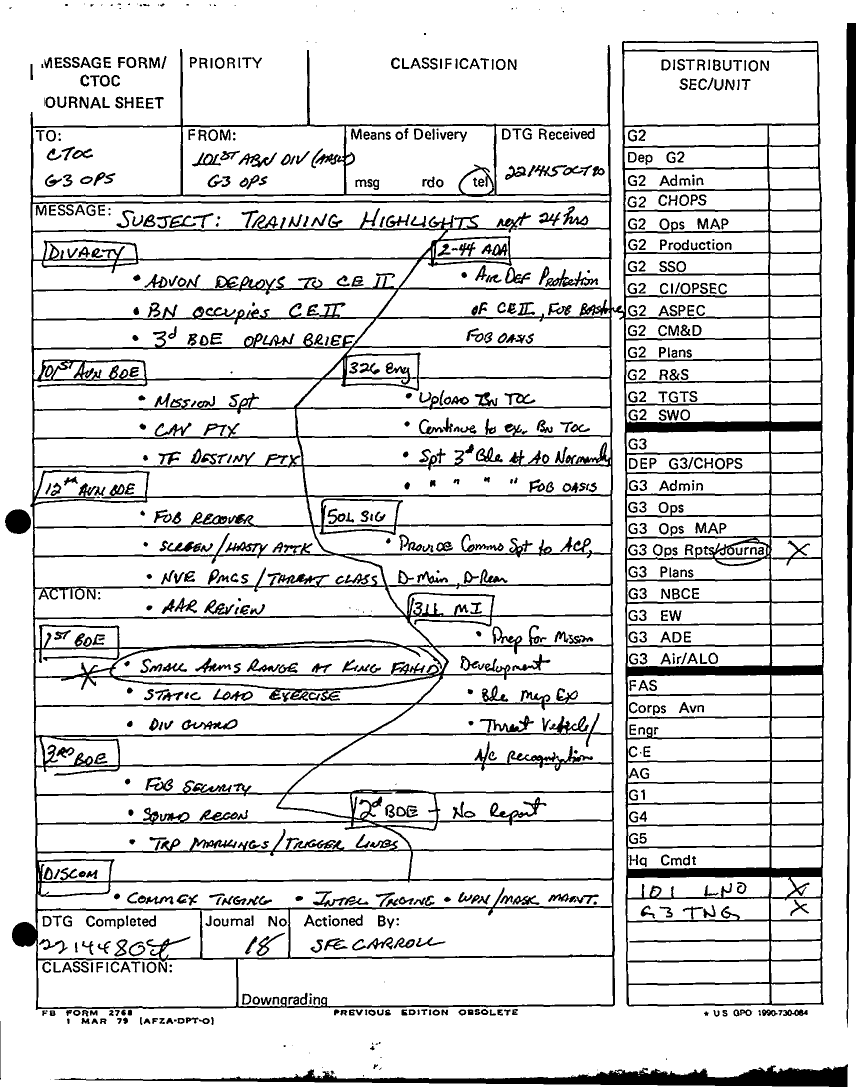 MESSAGE FORM/
CTOC
OURNAL SHEET
PRIORITY
CLASSIFICATION
TO:
CTOC
G3 OPS
FROM:
101ST ABN DIV (AASLT)
G3 OPS
Means of Delivery
msg rdo tel
DTG Received
221415OCT90
MESSAGE:
SUBJECT: TRAINING HIGHLIGHTS next 24 hrs
DIVARTY
• ADVON DEPLOYS TO CE II
• BN OCCUPIES CE II
• 3d BDE OPLAN BRIEF
101ST AVN BDE
• MISSION Spt
• CAV FTX
• TF DESTINY FTX
12th AVN BDE
• FOB RECOVER
• SCREEN/HASTY ATTK
• NVE PMCS/THREAT CLASS
• AAR REVIEW
ACTION:
1ST BDE
• SMALL ARMS RANGE AT KING FAHD
• STATIC LOAD EXERCISE
• DIV GUARD
3RD BDE
• FOB SECURITY
• SQUAD RECON
• TRP MARKINGS/TRIGGER LINES
DISCOM
• COMMEX TNGING • INTEL TNGING • WPN/MASK MAINT.
2-44 ADA
• Air Def Protection
of CE II, FOB BASTOGNE
FOB OASIS
326 Eng
• Upload Bn TOC
• Continue to ex. Bn TOC
• Spt 3d Bde at AO Normandy
• " " " " FOB OASIS
501 SIG
• Provide Comms Spt to ACP,
D-Main, D-Rear
311 MI
• Prep for Mission
Development
• Bde Mep Ex
• Threat Vehicle/
A/C Recognition
2d BDE - No Report
DTG Completed
221448Oct
Journal No
18
Actioned By:
SFC CARROLL
CLASSIFICATION:
Downgrading
FB FORM 2768
1 MAR 79 (AFZA-DPT-O)
PREVIOUS EDITION OBSOLETE
* US GPO 1990-730-084
DISTRIBUTION
SEC/UNIT
G2
Dep G2
G2 Admin
G2 CHOPS
G2 Ops MAP
G2 Production
G2 SSO
G2 CI/OPSEC
G2 ASPEC
G2 CM&D
G2 Plans
G2 R&S
G2 TGTS
G2 SWO
G3
DEP G3/CHOPS
G3 Admin
G3 Ops
G3 Ops MAP
G3 Ops Rpts/Journal X
G3 Plans
G3 NBCE
G3 EW
G3 ADE
G3 Air/ALO
FAS
Corps Avn
Engr
C-E
AG
G1
G4
G5
Hq Cmdt
101 LNO X
G3 TNG X